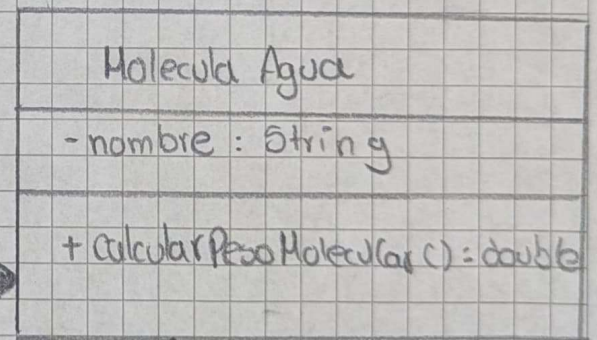 Molecula Agua
- nombre : String
+ calcularPesoMolecular() : double